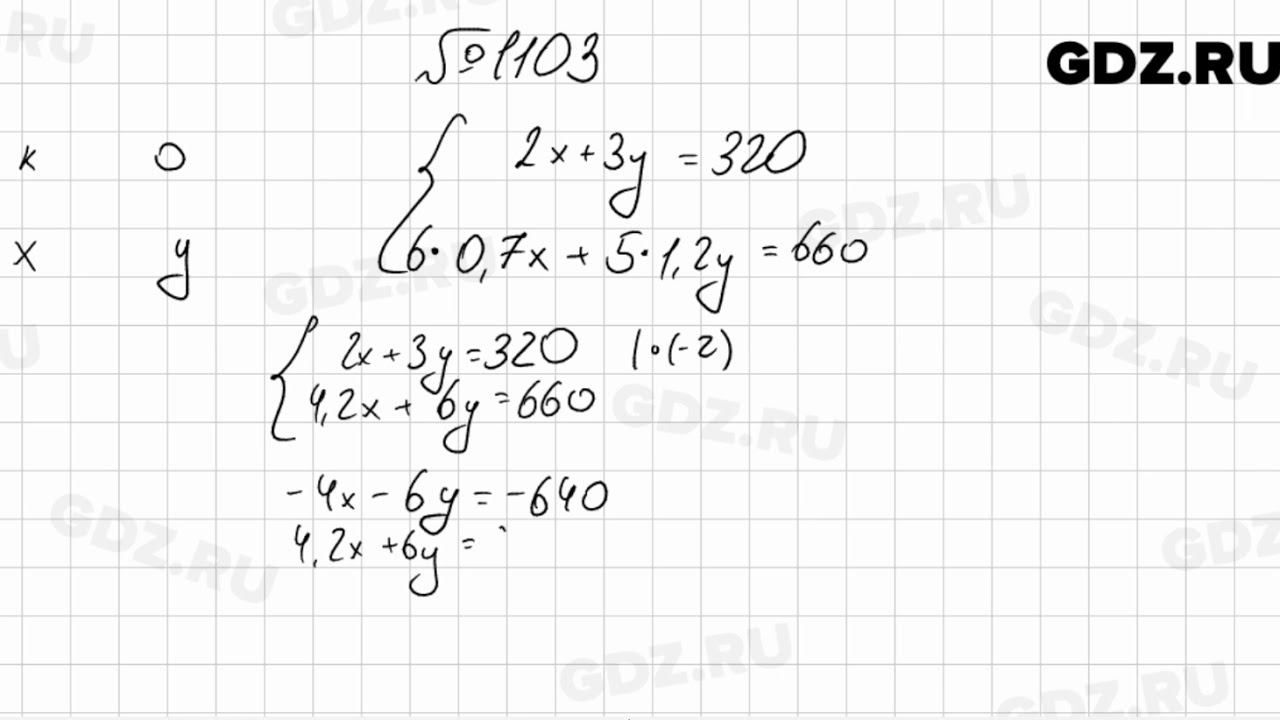 №1103
GDZ.RU
к о
x y
{ 2x + 3y = 320
6·0,7x + 5·1,2y = 660
{ 2x + 3y = 320 |·(-2)
4,2x + 6y = 660
-4x - 6y = -640
4,2x + 6y =
GDZ.RU
GDZ.RU
GDZ.RU
GDZ.RU
GDZ.RU
GDZ.RU
GDZ.RU
GDZ.RU
GDZ.RU